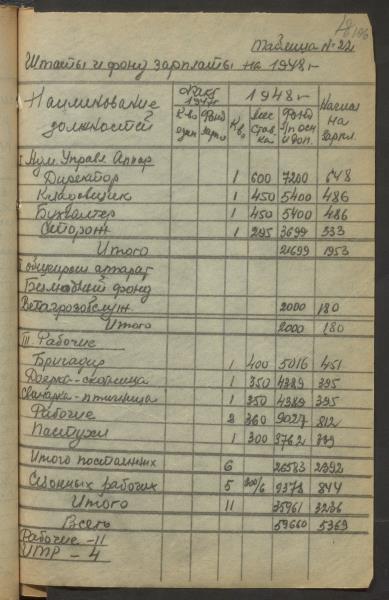 196
Таблица № 22
Штаты и фонд зарплаты на 1948 г
Наименование должностей
Факт 1947
1948 г
К-во един
Фонд зарп.
К-во
Мес став-ка
Фонд з/п осн и доп.
Начисл на зарпл.
I Адм. Управл. Аппар
Директор 1 600 7200 648
Кладовщик 1 450 5400 486
Бухгалтер 1 450 5400 486
Сторож 1 295 3699 333
Итого 21699 1953
фонд
2000 180
Итого 2000 180
III. Рабочие
Бригадир 1 400 5016 451
Доярка-скотница 1 350 4389 395
Свинарка-птичница 1 350 4389 395
Рабочие 2 360 9027 812
Пастухи 1 300 3762 339
Итого постоянных 6 26583 2392
Сезонных рабочих 5 300/6 9378 844
Итого 11 35961 3236
Всего 59660 5369
Рабочие - 11
ИТР - 4